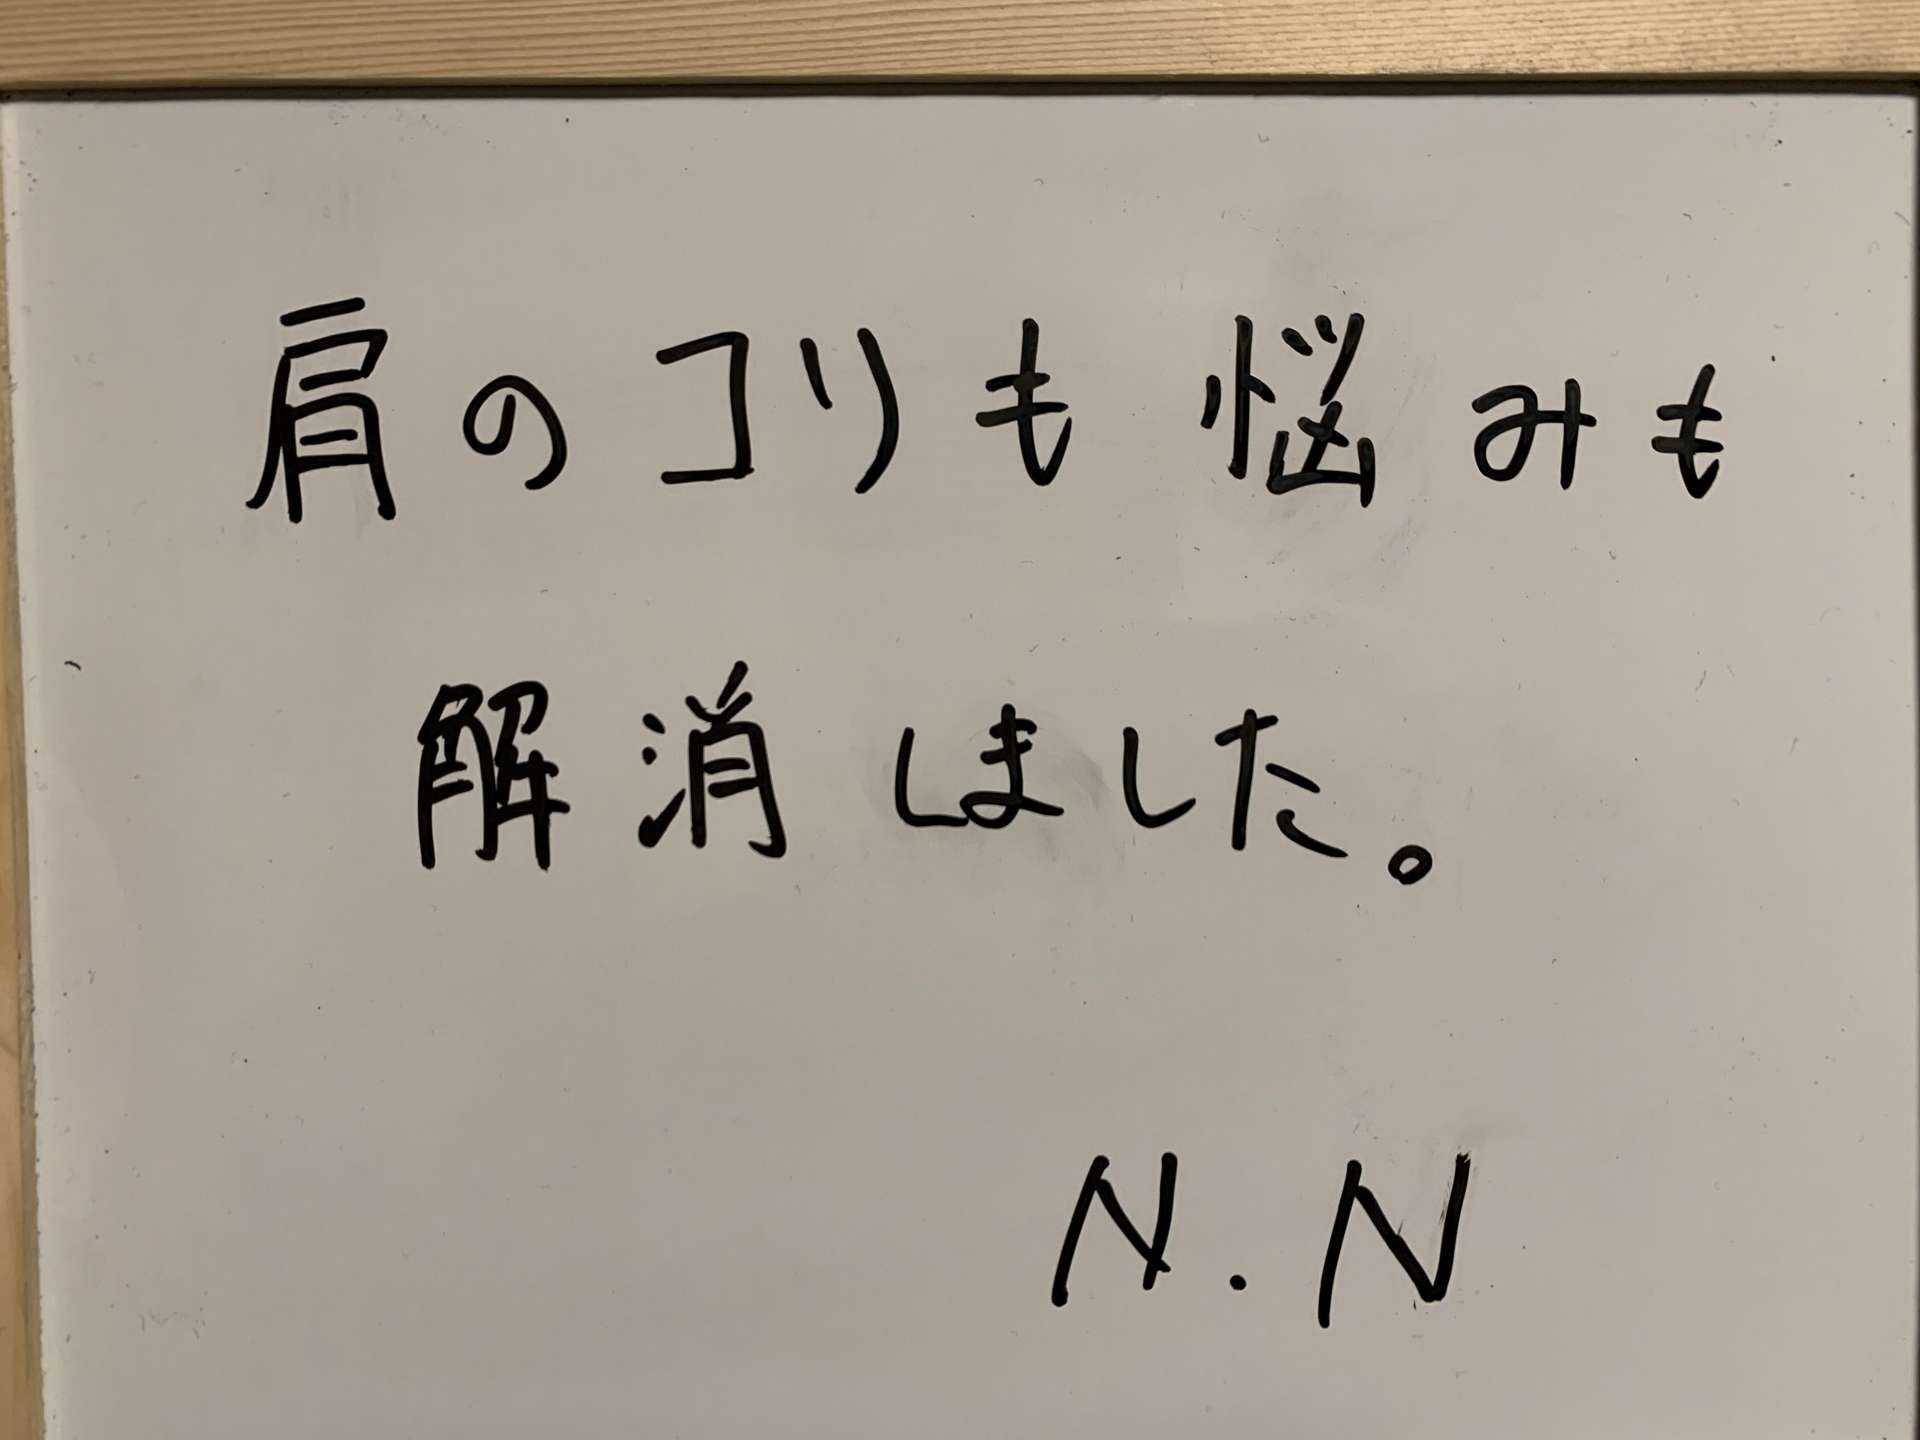 肩のコリも悩みも
解消しました。
N.N